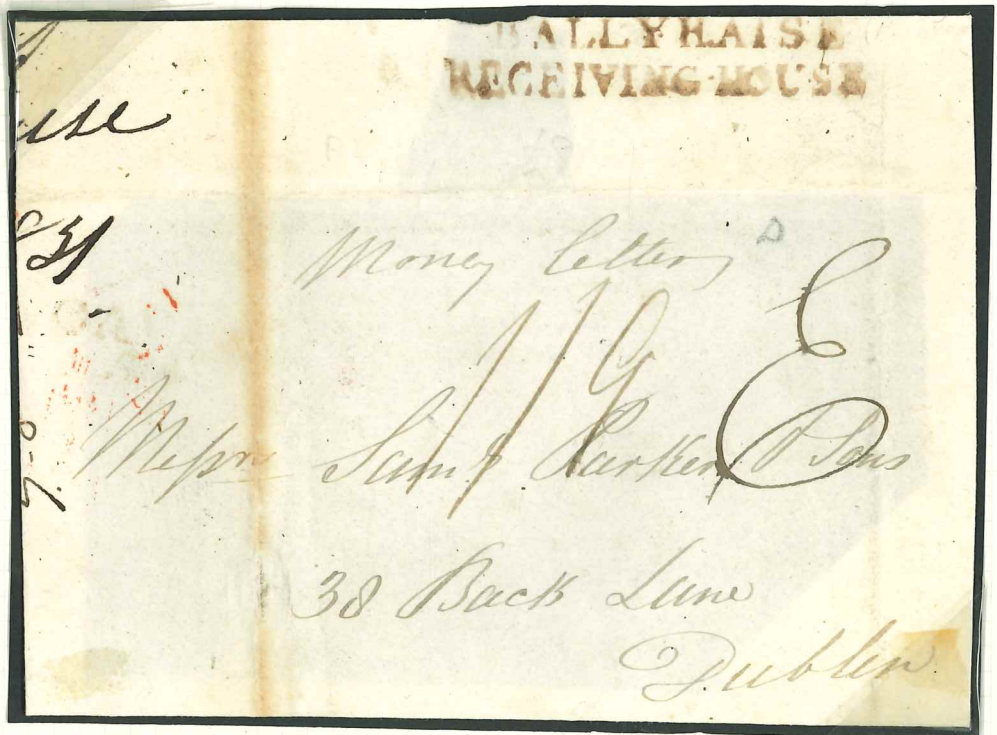 BALLYHAISE
RECEIVING-HOUSE
use
Money letter
11 9 E
Messrs Saml Parker & Sons
38 Back Lane
Dublin